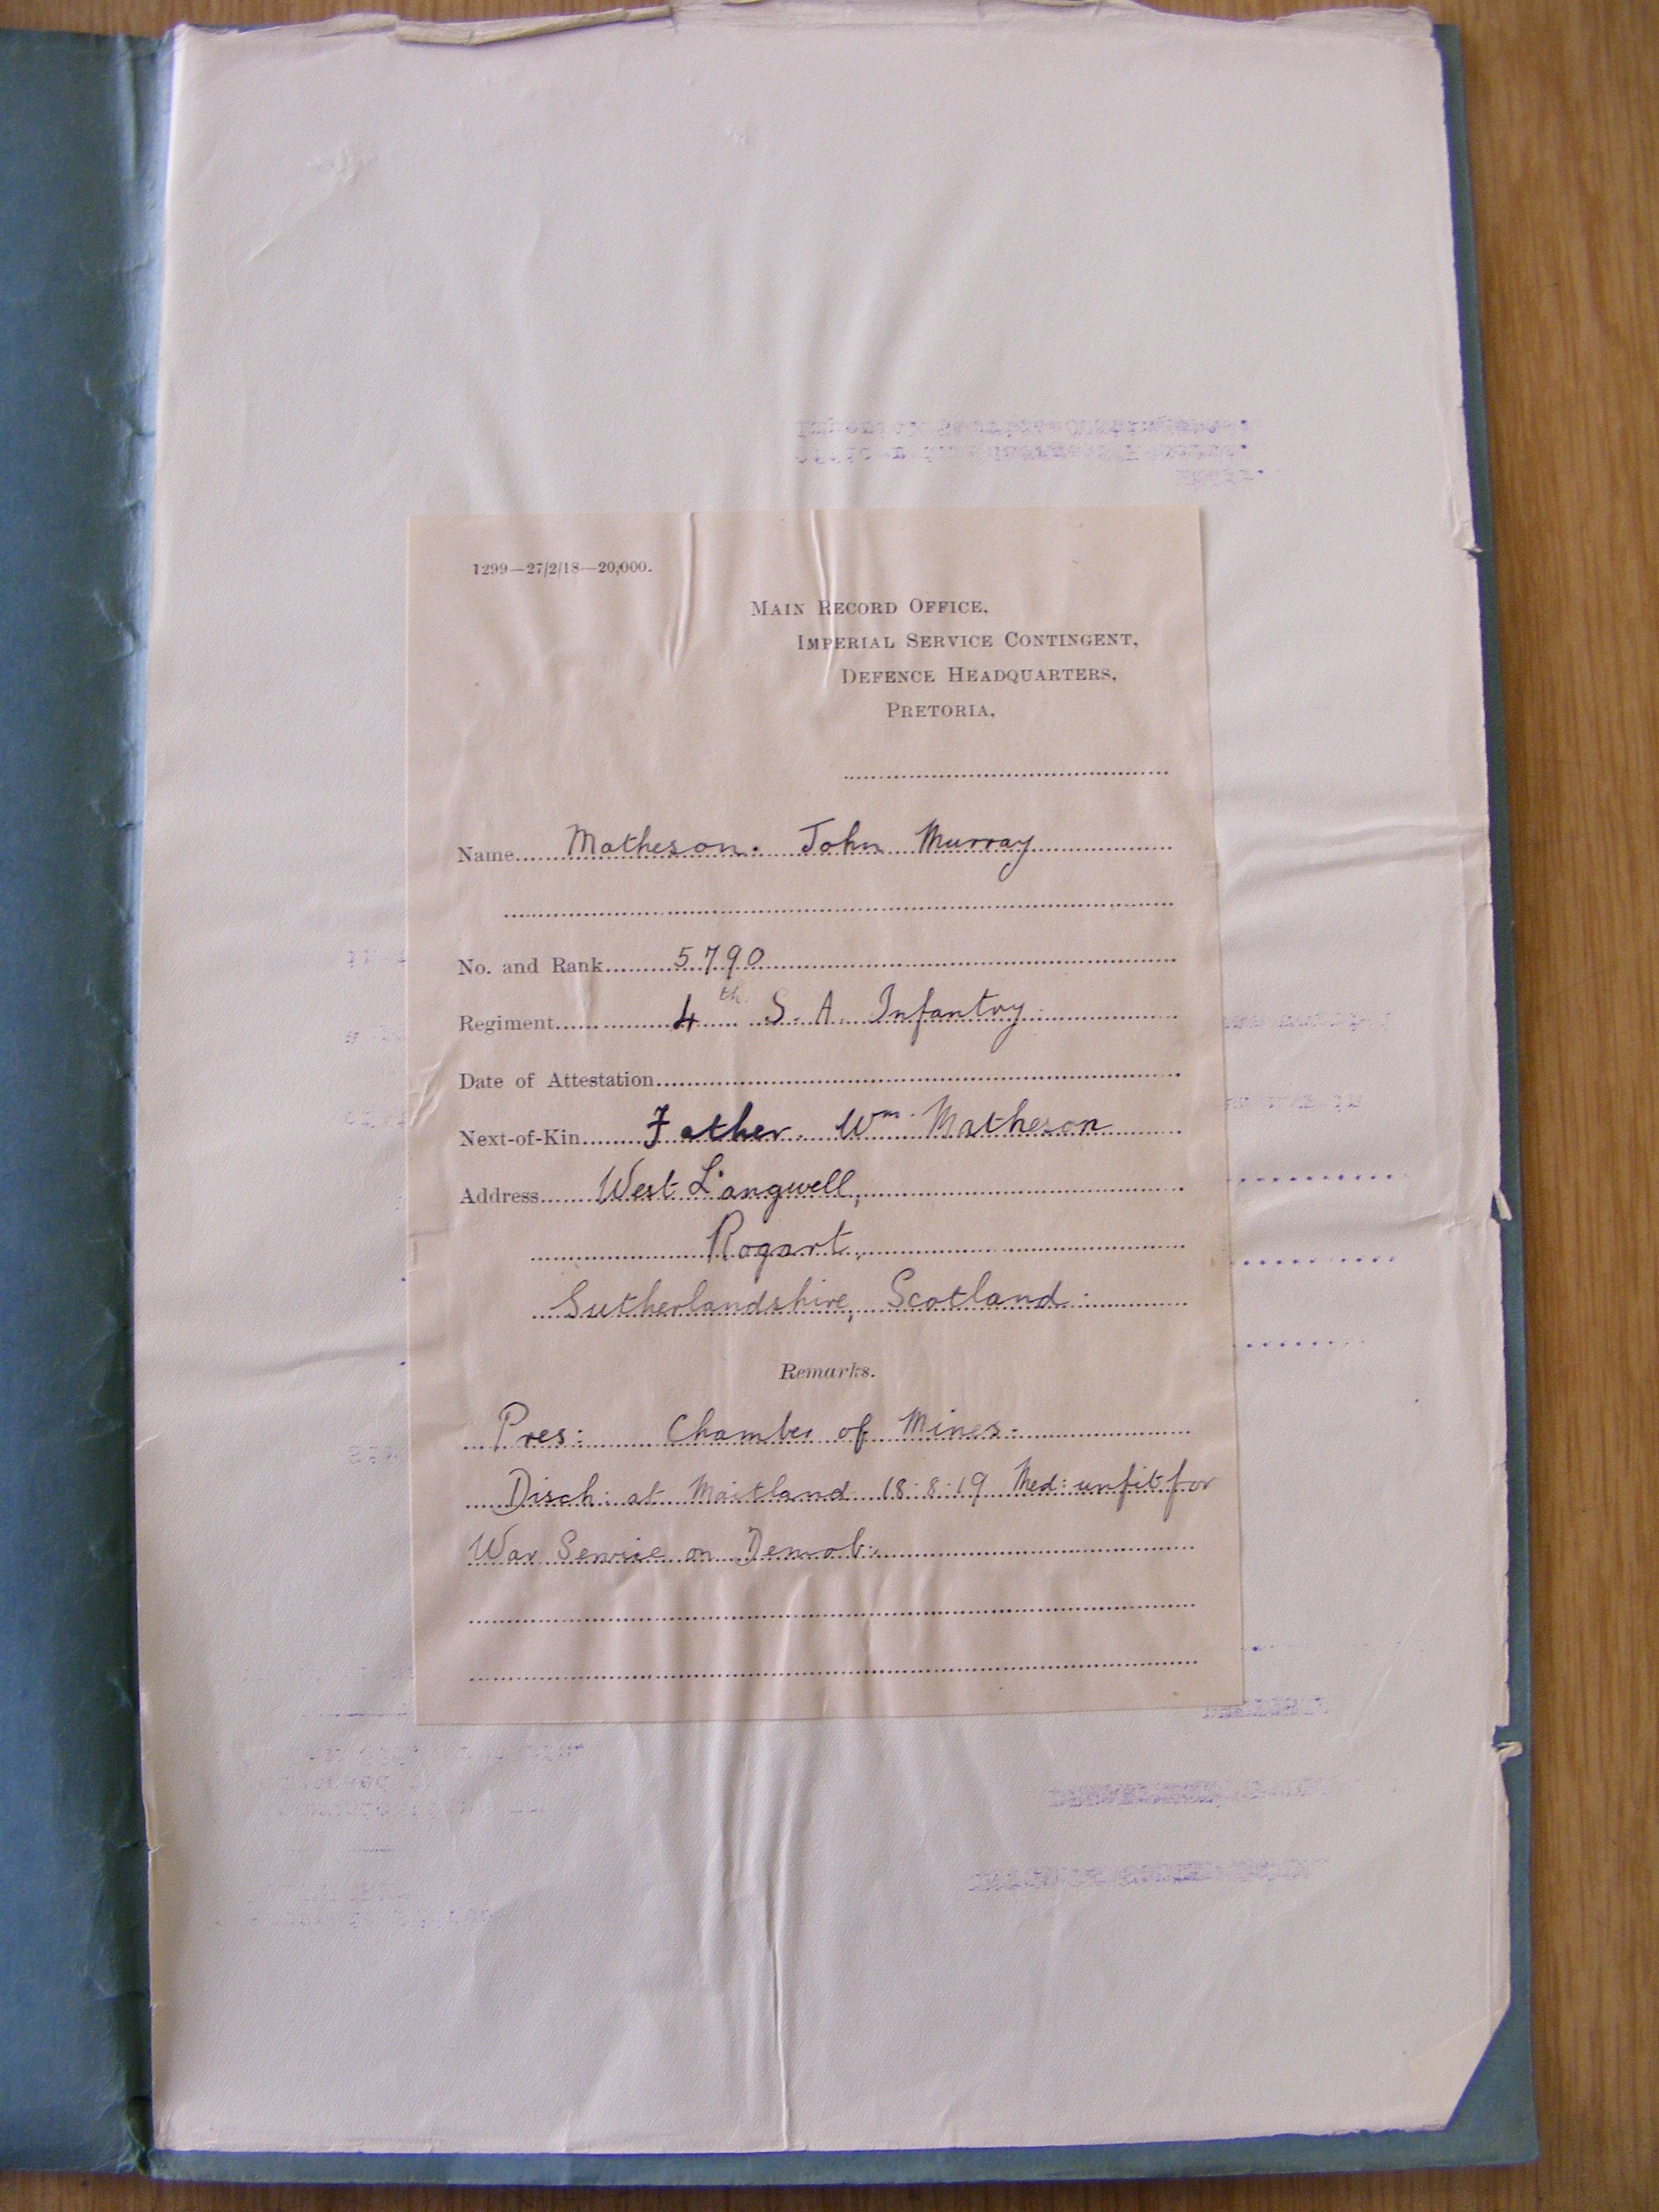 1299—27/2/18—20,000.
Main Record Office,
Imperial Service Contingent,
Defence Headquarters,
Pretoria,
Name Matheson. John Murray
No. and Rank 5790
Regiment 4th S. A. Infantry
Date of Attestation
Next-of-Kin Father. Wm. Matheson
Address West Langwell,
Rogart,
Sutherlandshire, Scotland.
Remarks.
Pres: Chamber of Mines.
Disch: at Maitland 18:8:19 Med: unfit for
War Service on Demob: